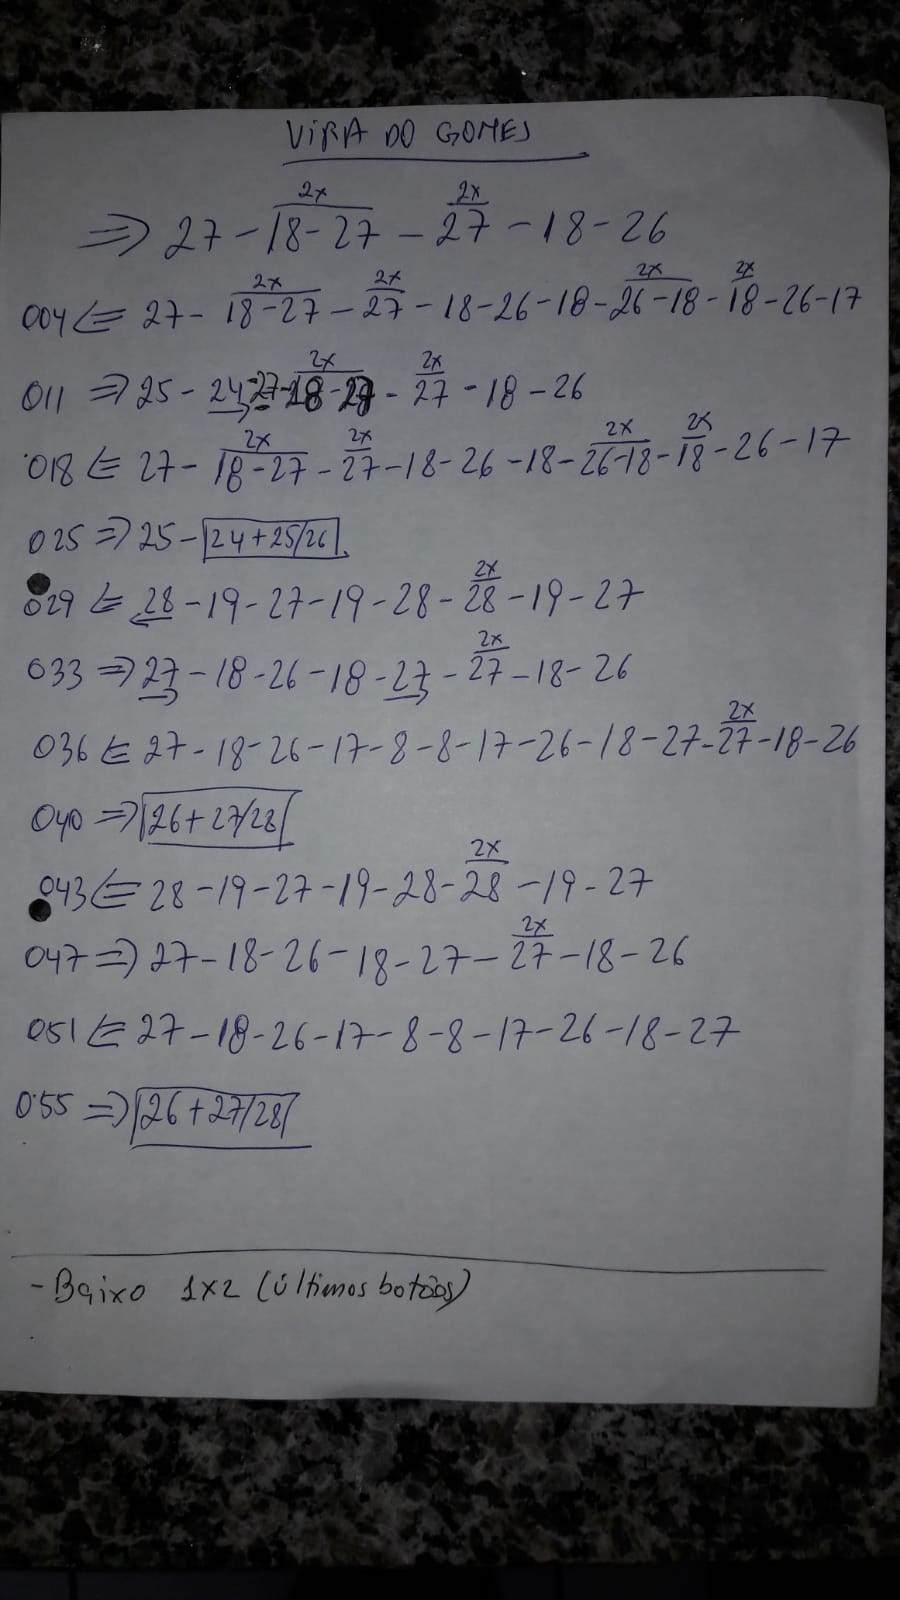 VIRA DO GOMES
⇒ 27 - 2x 18-27 - 2x 27 - 18 - 26
004 ⇐ 27 - 2x 18-27 - 2x 27 - 18-26-18 - 2x 26-18 - 2x 18 - 26-17
011 ⇒ 25 - 24 - 27 - 2x 18-27 - 2x 27 - 18 - 26
018 ⇐ 27 - 2x 18-27 - 2x 27 - 18 - 26 - 18 - 2x 26-18 - 2x 18 - 26 - 17
025 ⇒ 25 - 24+25/26
029 ⇐ 28 - 19 - 27 - 19 - 28 - 2x 28 - 19 - 27
033 ⇒ 27 - 18 - 26 - 18 - 27 - 2x 27 - 18 - 26
036 ⇐ 27 - 18 - 26 - 17 - 8 - 8 - 17 - 26 - 18 - 27 - 2x 27 - 18 - 26
040 ⇒ 26+27/28
043 ⇐ 28 - 19 - 27 - 19 - 28 - 2x 28 - 19 - 27
047 ⇒ 27 - 18 - 26 - 18 - 27 - 2x 27 - 18 - 26
051 ⇐ 27 - 18 - 26 - 17 - 8 - 8 - 17 - 26 - 18 - 27
055 ⇒ 26+27/28
- Baixo 1x2 (últimos botões)